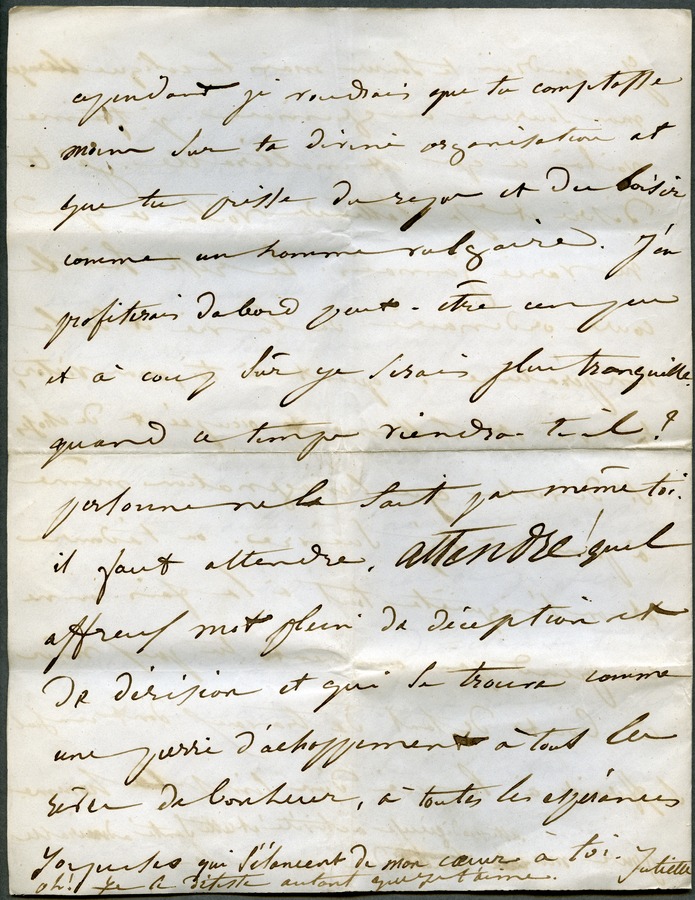 cependant je voudrais que tu comptasse
moins sur ta divine organisation et
que tu prisse du repos et du loisir
comme un homme vulgaire. J'en
profiterais dabord peut-être un peu
et à coup sûr je serais plus tranquille.
quand ce temps viendra-t-il ?
personne ne le sait pas même toi.
il faut attendre. attendre! quel
affreux mot plein de déception et
de dérision et qui se trouve comme
une pierre d'achoppement à tous les
rêves de bonheur, à toutes les espérances
joyeuses qui s'élancent de mon cœur à toi. Juliette
oh! je le déteste autant que je t'aime.